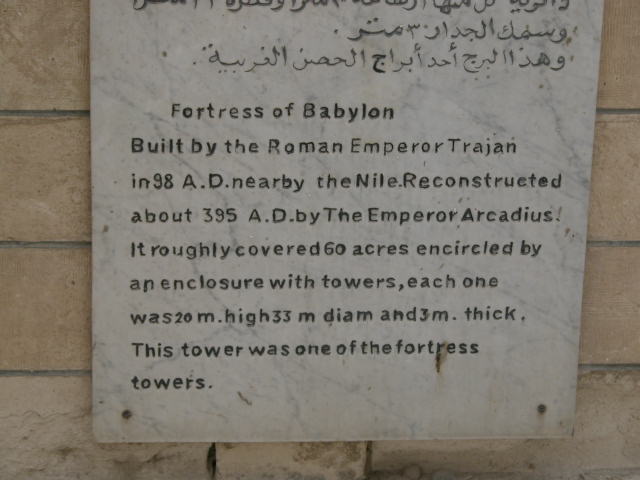 وسمك الجدار ٣ متر.
وهذا البرج أحد أبراج الحصن الغربية.
Fortress of Babylon
Built by the Roman Emperor Trajan
in 98 A.D. nearby the Nile. Reconstructed
about 395 A.D. by The Emperor Arcadius.
It roughly covered 60 acres encircled by
an enclosure with towers, each one
was 20 m. high 33 m diam and 3 m. thick.
This tower was one of the fortress
towers.